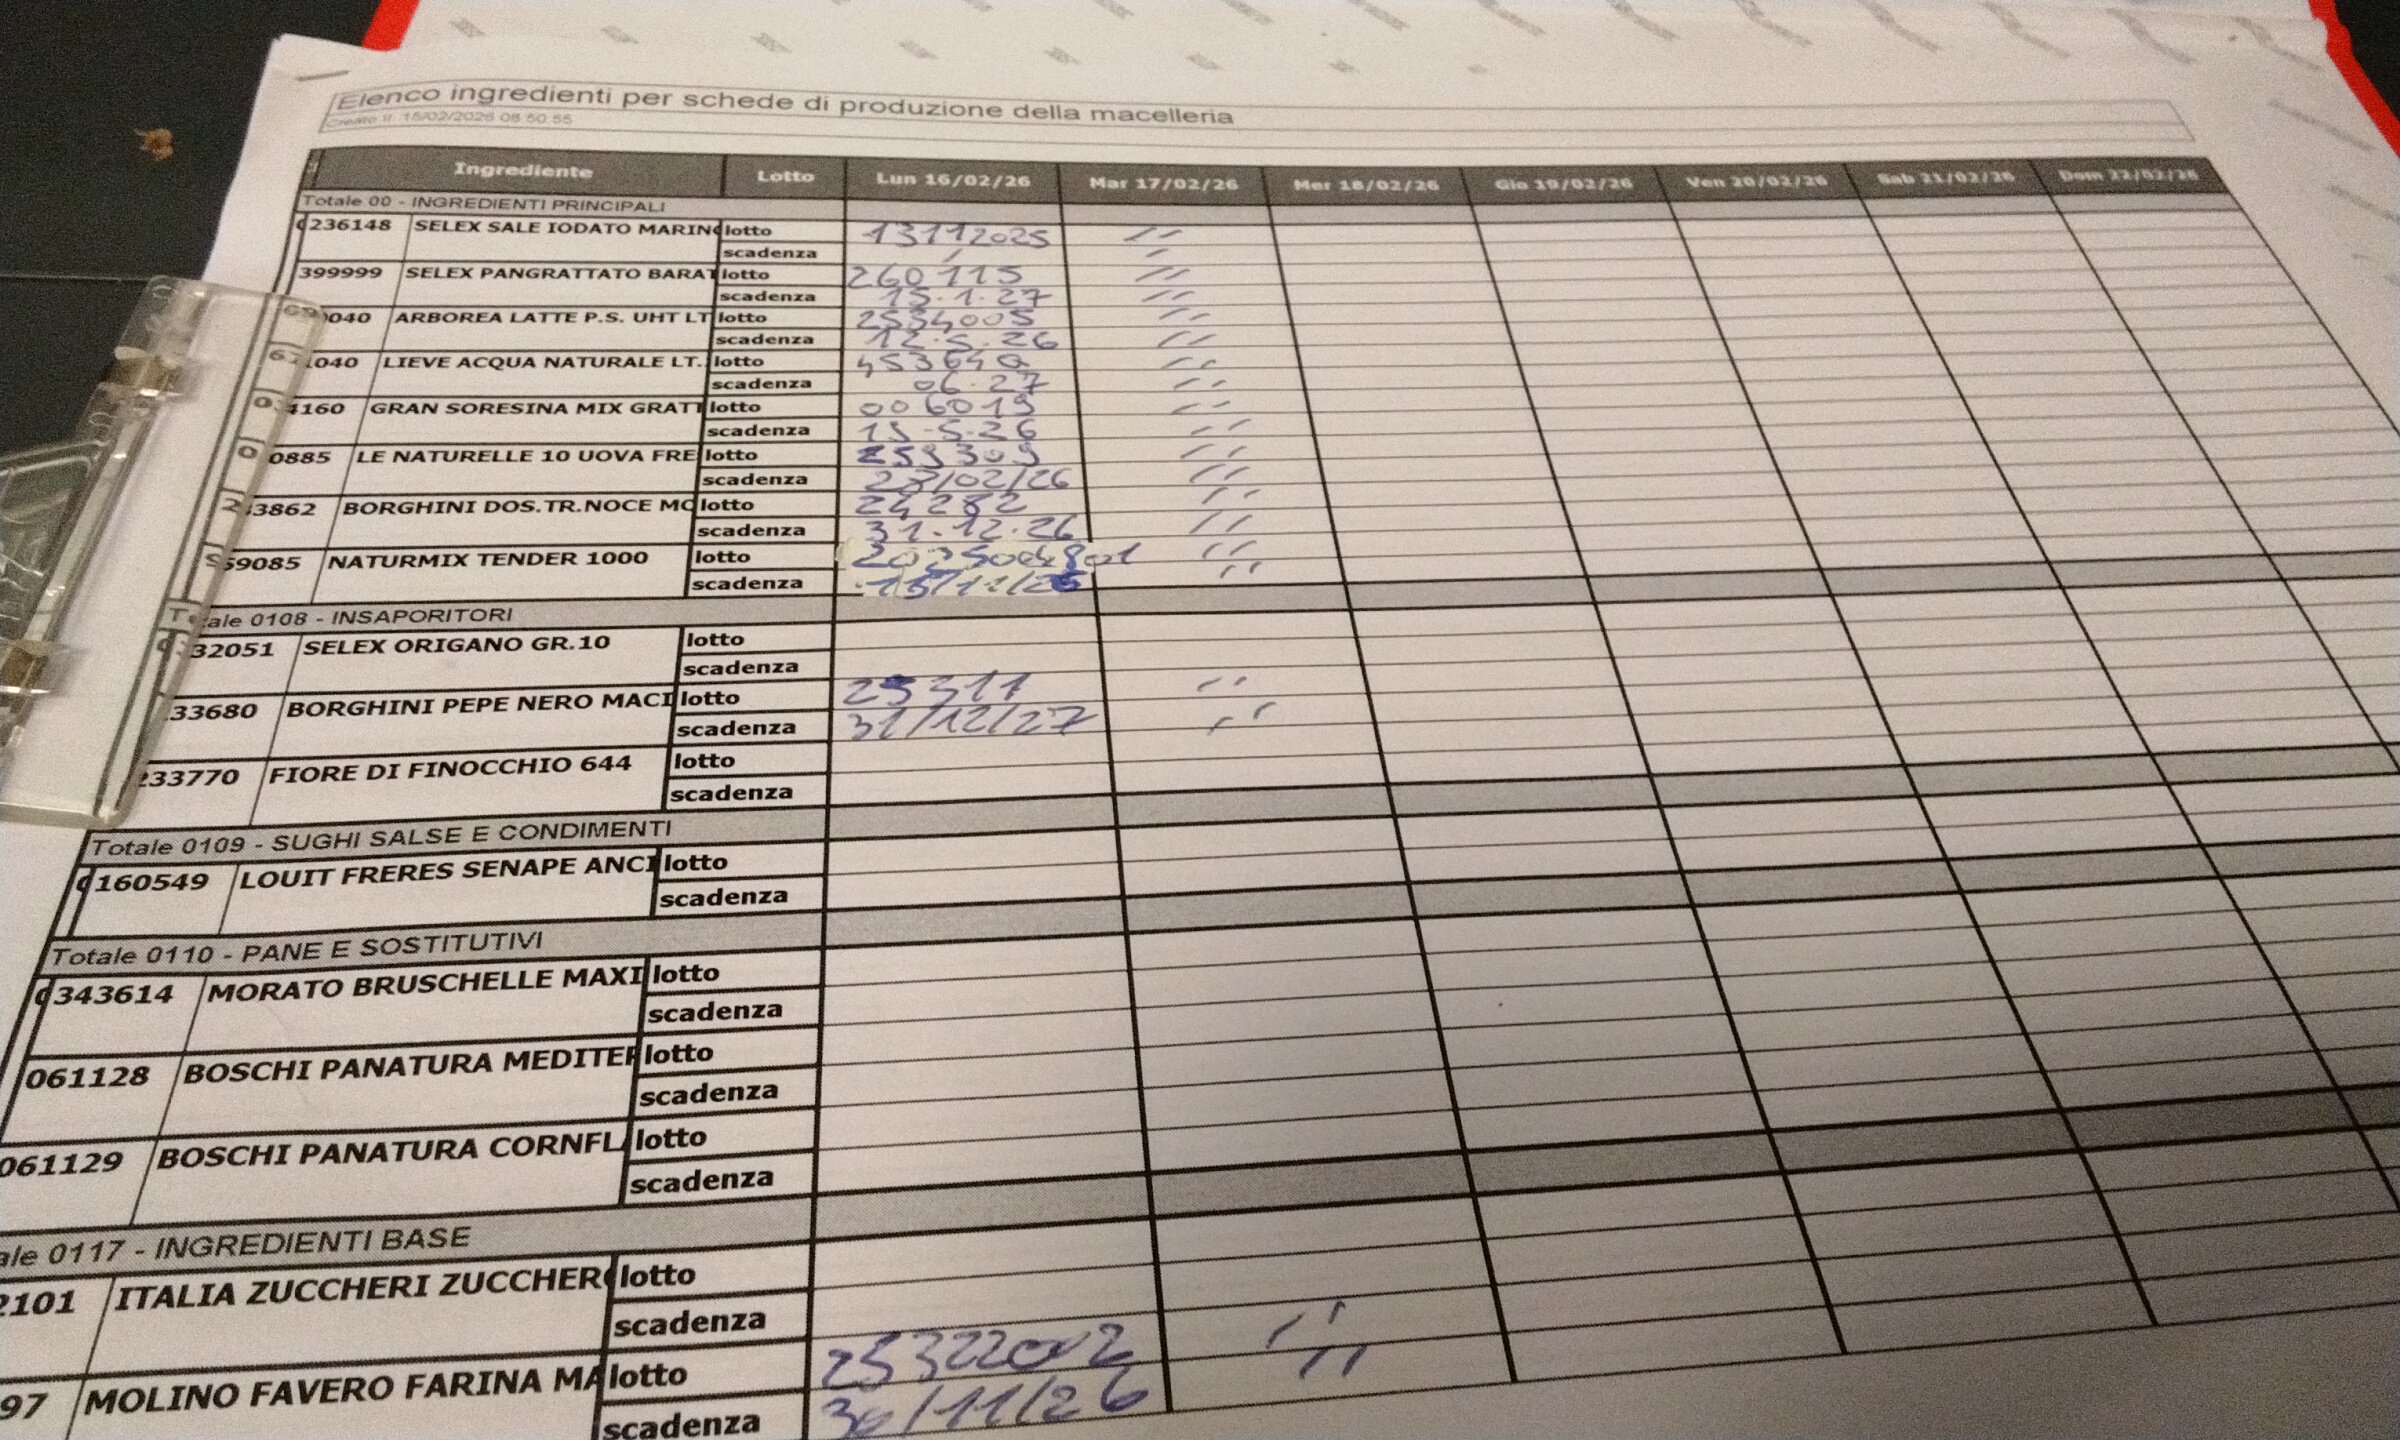 Elenco ingredienti per schede di produzione della macelleria
Creato il 15/02/2026 08:50:55
Ingrediente Lotto Lun 16/02/26 Mar 17/02/26 Mer 18/02/26 Gio 19/02/26 Ven 20/02/26 Sab 21/02/26 Dom 22/02/26
Totale 00 - INGREDIENTI PRINCIPALI
236148 SELEX SALE IODATO MARINO lotto 13112025 ''
scadenza / ''
399999 SELEX PANGRATTATO BARAT lotto 260115 ''
scadenza 15.1.27 ''
040 ARBOREA LATTE P.S. UHT LT lotto 2534005 ''
scadenza 12.5.26 ''
040 LIEVE ACQUA NATURALE LT. lotto ''
scadenza 06.27 ''
4160 GRAN SORESINA MIX GRATT lotto 006019 ''
scadenza 15-5-26 ''
0885 LE NATURELLE 10 UOVA FRE lotto ''
scadenza 23/02/26 ''
3862 BORGHINI DOS.TR.NOCE MO lotto ''
scadenza 31.12.26 ''
59085 NATURMIX TENDER 1000 lotto ''
scadenza ''
Totale 0108 - INSAPORITORI
32051 SELEX ORIGANO GR.10 lotto
scadenza
33680 BORGHINI PEPE NERO MACI lotto 25311 ''
scadenza 31/12/27 ''
233770 FIORE DI FINOCCHIO 644 lotto
scadenza
Totale 0109 - SUGHI SALSE E CONDIMENTI
160549 LOUIT FRERES SENAPE ANCI lotto
scadenza
Totale 0110 - PANE E SOSTITUTIVI
343614 MORATO BRUSCHELLE MAXI lotto
scadenza
061128 BOSCHI PANATURA MEDITER lotto
scadenza
061129 BOSCHI PANATURA CORNFLA lotto
scadenza
ale 0117 - INGREDIENTI BASE
2101 ITALIA ZUCCHERI ZUCCHERO lotto
scadenza
97 MOLINO FAVERO FARINA MA lotto 25322002 ''
scadenza 30/11/26 ''